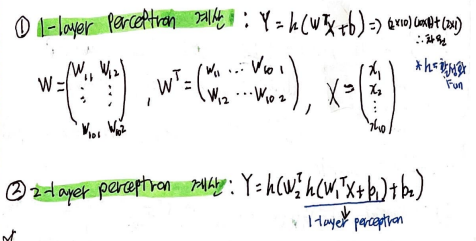 ① 1-layer perceptron 계산 : Y = h(WᵀX + b) ⇒ (2x10) (10x1) + (2x1)
W = (W₁₁ W₁₂ ⋮ ⋮ W₁₀₁ W₁₀₂) , Wᵀ = (W₁₁ ⋯ W₁₀ ₁ W₁₂ ⋯ W₁₀ ₂) , X = (x₁ x₂ ⋮ x₁₀)
* h는 활성화 Fun
② 2-layer perceptron 계산 : Y = h(W₂ᵀ h(W₁ᵀX + b₁) + b₂)
1-layer perceptron